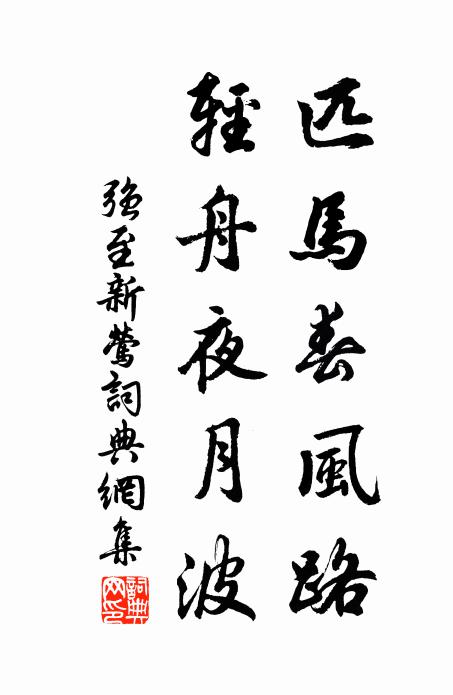 匹馬春風路
輕舟夜月波
強至新鶯詞典網集
詞典网印